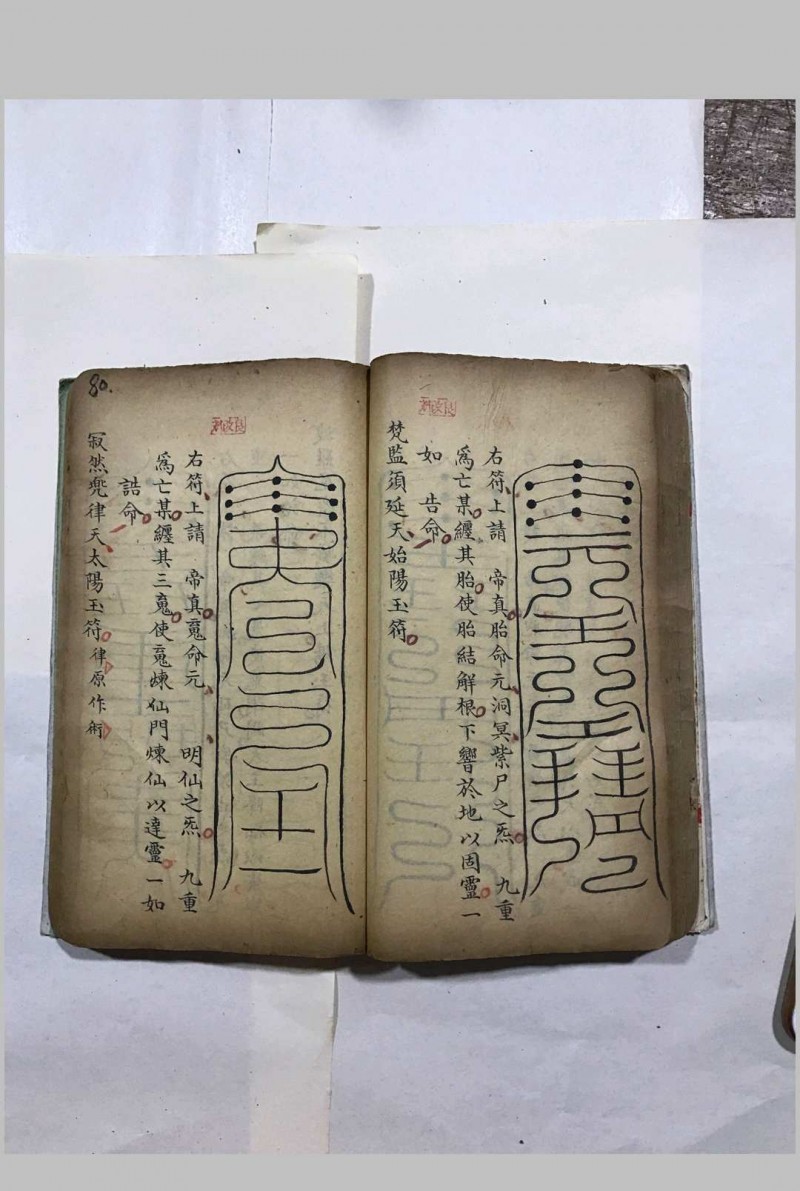 右符上請　帝真胎命元洞冥紫尸之炁　九重
爲亡某纏其胎使胎結解根下響於地以固靈一
如　告命
梵監須延天始陽玉符
右符上請　帝真魂命元　明仙之炁　九重
爲亡某纏其三魂使魂煉仙門煉仙以達靈一如
誥命
寂然兜律天太陽玉符律原作術
80.